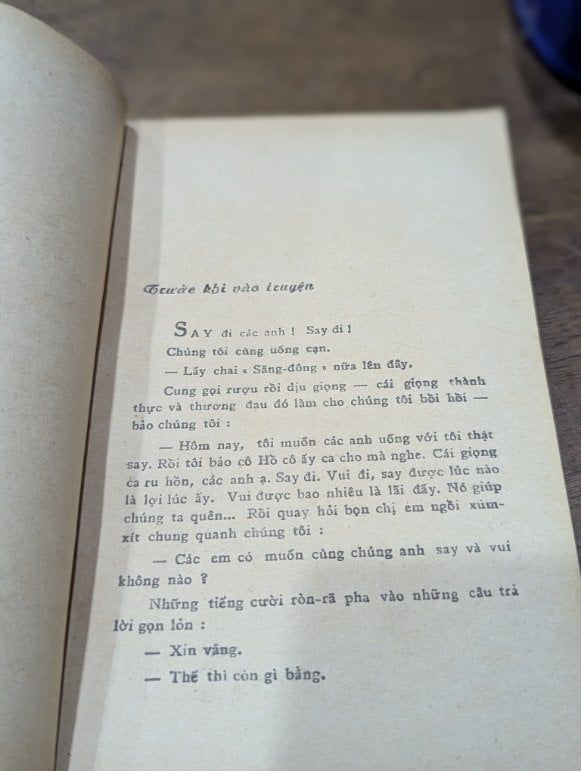 Trước khi vào truyện
SAY đi các anh ! Say đi !
Chúng tôi cùng uống cạn.
— Lấy chai « Săng-đông » nữa lên đây.
Cung gọi rượu rồi dịu giọng — cái giọng thành
thực và thương đau đó làm cho chúng tôi bồi hồi —
bảo chúng tôi :
— Hôm nay, tôi muốn các anh uống với tôi thật
say. Rồi tôi bảo cô Hồ cô ấy ca cho mà nghe. Cái giọng
ca ru hồn, các anh ạ. Say đi. Vui đi, say được lúc nào
là lợi lúc ấy. Vui được bao nhiêu là lãi đấy. Nó giúp
chúng ta quên... Rồi quay hỏi bọn chị em ngồi xúm-
xít chung quanh chúng tôi :
— Các em có muốn cùng chúng anh say và vui
không nào ?
Những tiếng cười ròn-rã pha vào những câu trả
lời gọn lỏn :
— Xin vâng.
— Thế thì còn gì bằng.